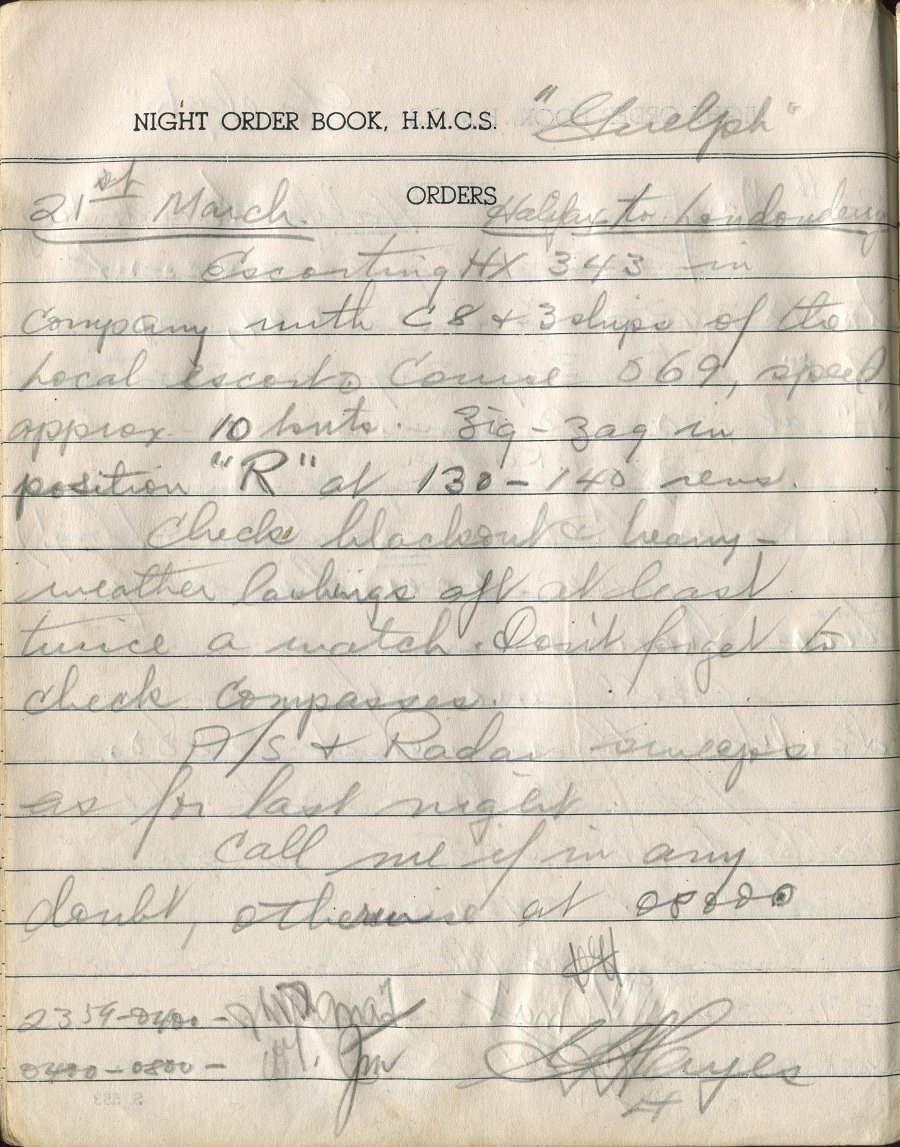 NIGHT ORDER BOOK, H.M.C.S. "Guelph"
ORDERS
21st March. Halifax to Londonderry
Escorting HX 343 in
company with C8 & 3 ships of the
local escort. Course 069, speed
approx. 10 knts. Zig-Zag in
position "R" at 130-140 revs.
Check blackout & heavy-
weather lashings aft at least
twice a watch. Don't forget to
check compasses.
A/S & Radar sweeps
as for last night
Call me if in any
doubt, otherwise at 0800
2359-0400-
0400-0800- Hayes